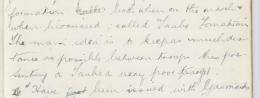 formation both when on the march &
when bivouaced; called Taube Formation
The main idea is to keep as much dis-
tance as possible between troops thus pre-
senting a Taube a very poor target.
Have just been issued with